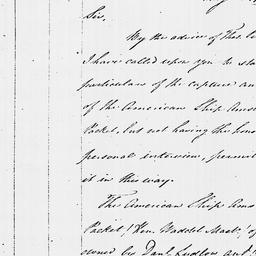 Sir,
By the advice of Thos.
I have called upon you to sta
particulars of the capture an
of the American Ship Ams
Packet, but not having the hono
personal interview, permit
it in this way.
The American Ship Ams
Packet, (Hen. Waddel Mast.) of
owned by Danl. Ludlow